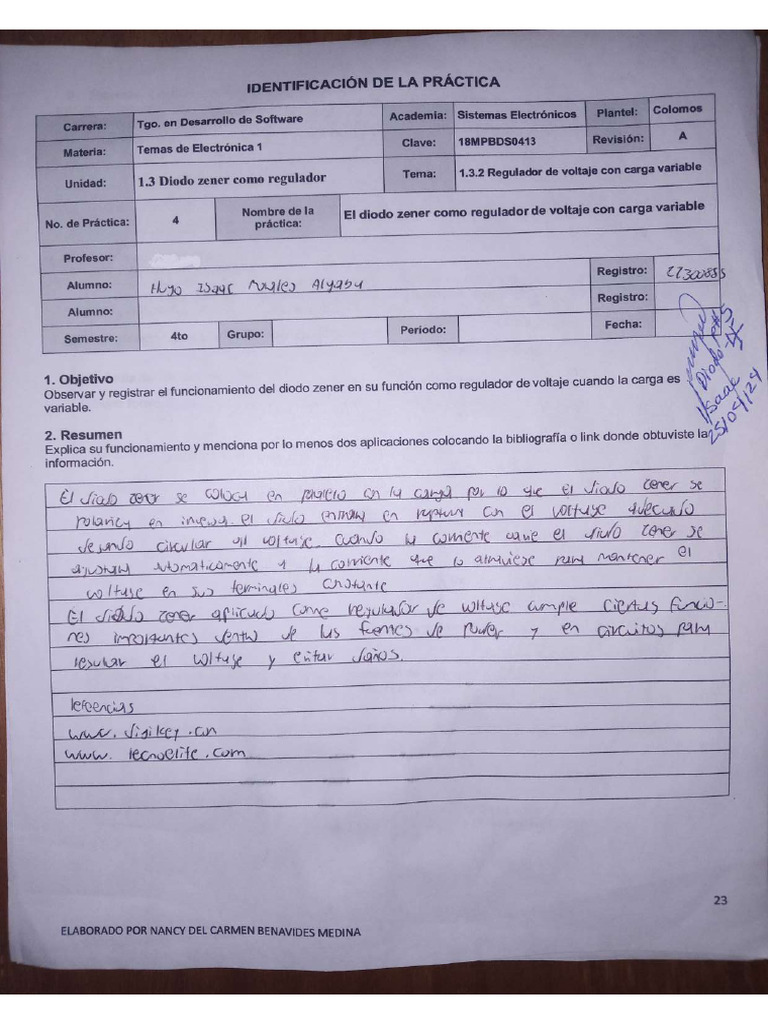 IDENTIFICACIÓN DE LA PRÁCTICA
Carrera: Tgo. en Desarrollo de Software Academia: Sistemas Electrónicos Plantel: Colomos
Materia: Temas de Electrónica 1 Clave: 18MPBDS0413 Revisión: A
Unidad: 1.3 Diodo zener como regulador Tema: 1.3.2 Regulador de voltaje con carga variable
No. de Práctica: 4 Nombre de la práctica: El diodo zener como regulador de voltaje con carga variable
Profesor:
Alumno: Hugo Isaac Registro:
Alumno: Registro:
Semestre: 4to Grupo: Periodo: Fecha:
Diodo
Isaac
25/04/24
1. Objetivo
Observar y registrar el funcionamiento del diodo zener en su función como regulador de voltaje cuando la carga es
variable.
2. Resumen
Explica su funcionamiento y menciona por lo menos dos aplicaciones colocando la bibliografía o link donde obtuviste la
información.
El diodo zener se coloca en con la carga por lo que el diodo zener se
en el diodo en ruptura con el voltaje adecuado
circular voltaje. cuando la corriente el diodo zener se
automaticamente y la corriente que lo para mantener el
voltaje en sus terminales
El diodo zener aplicado como regulador de voltaje cumple ciertas funcio-
nes importantes dentro de las fuentes de poder y en circuitos para
regular el voltaje y evitar daños.
www.
www. tecnoelite.com
23
ELABORADO POR NANCY DEL CARMEN BENAVIDES MEDINA